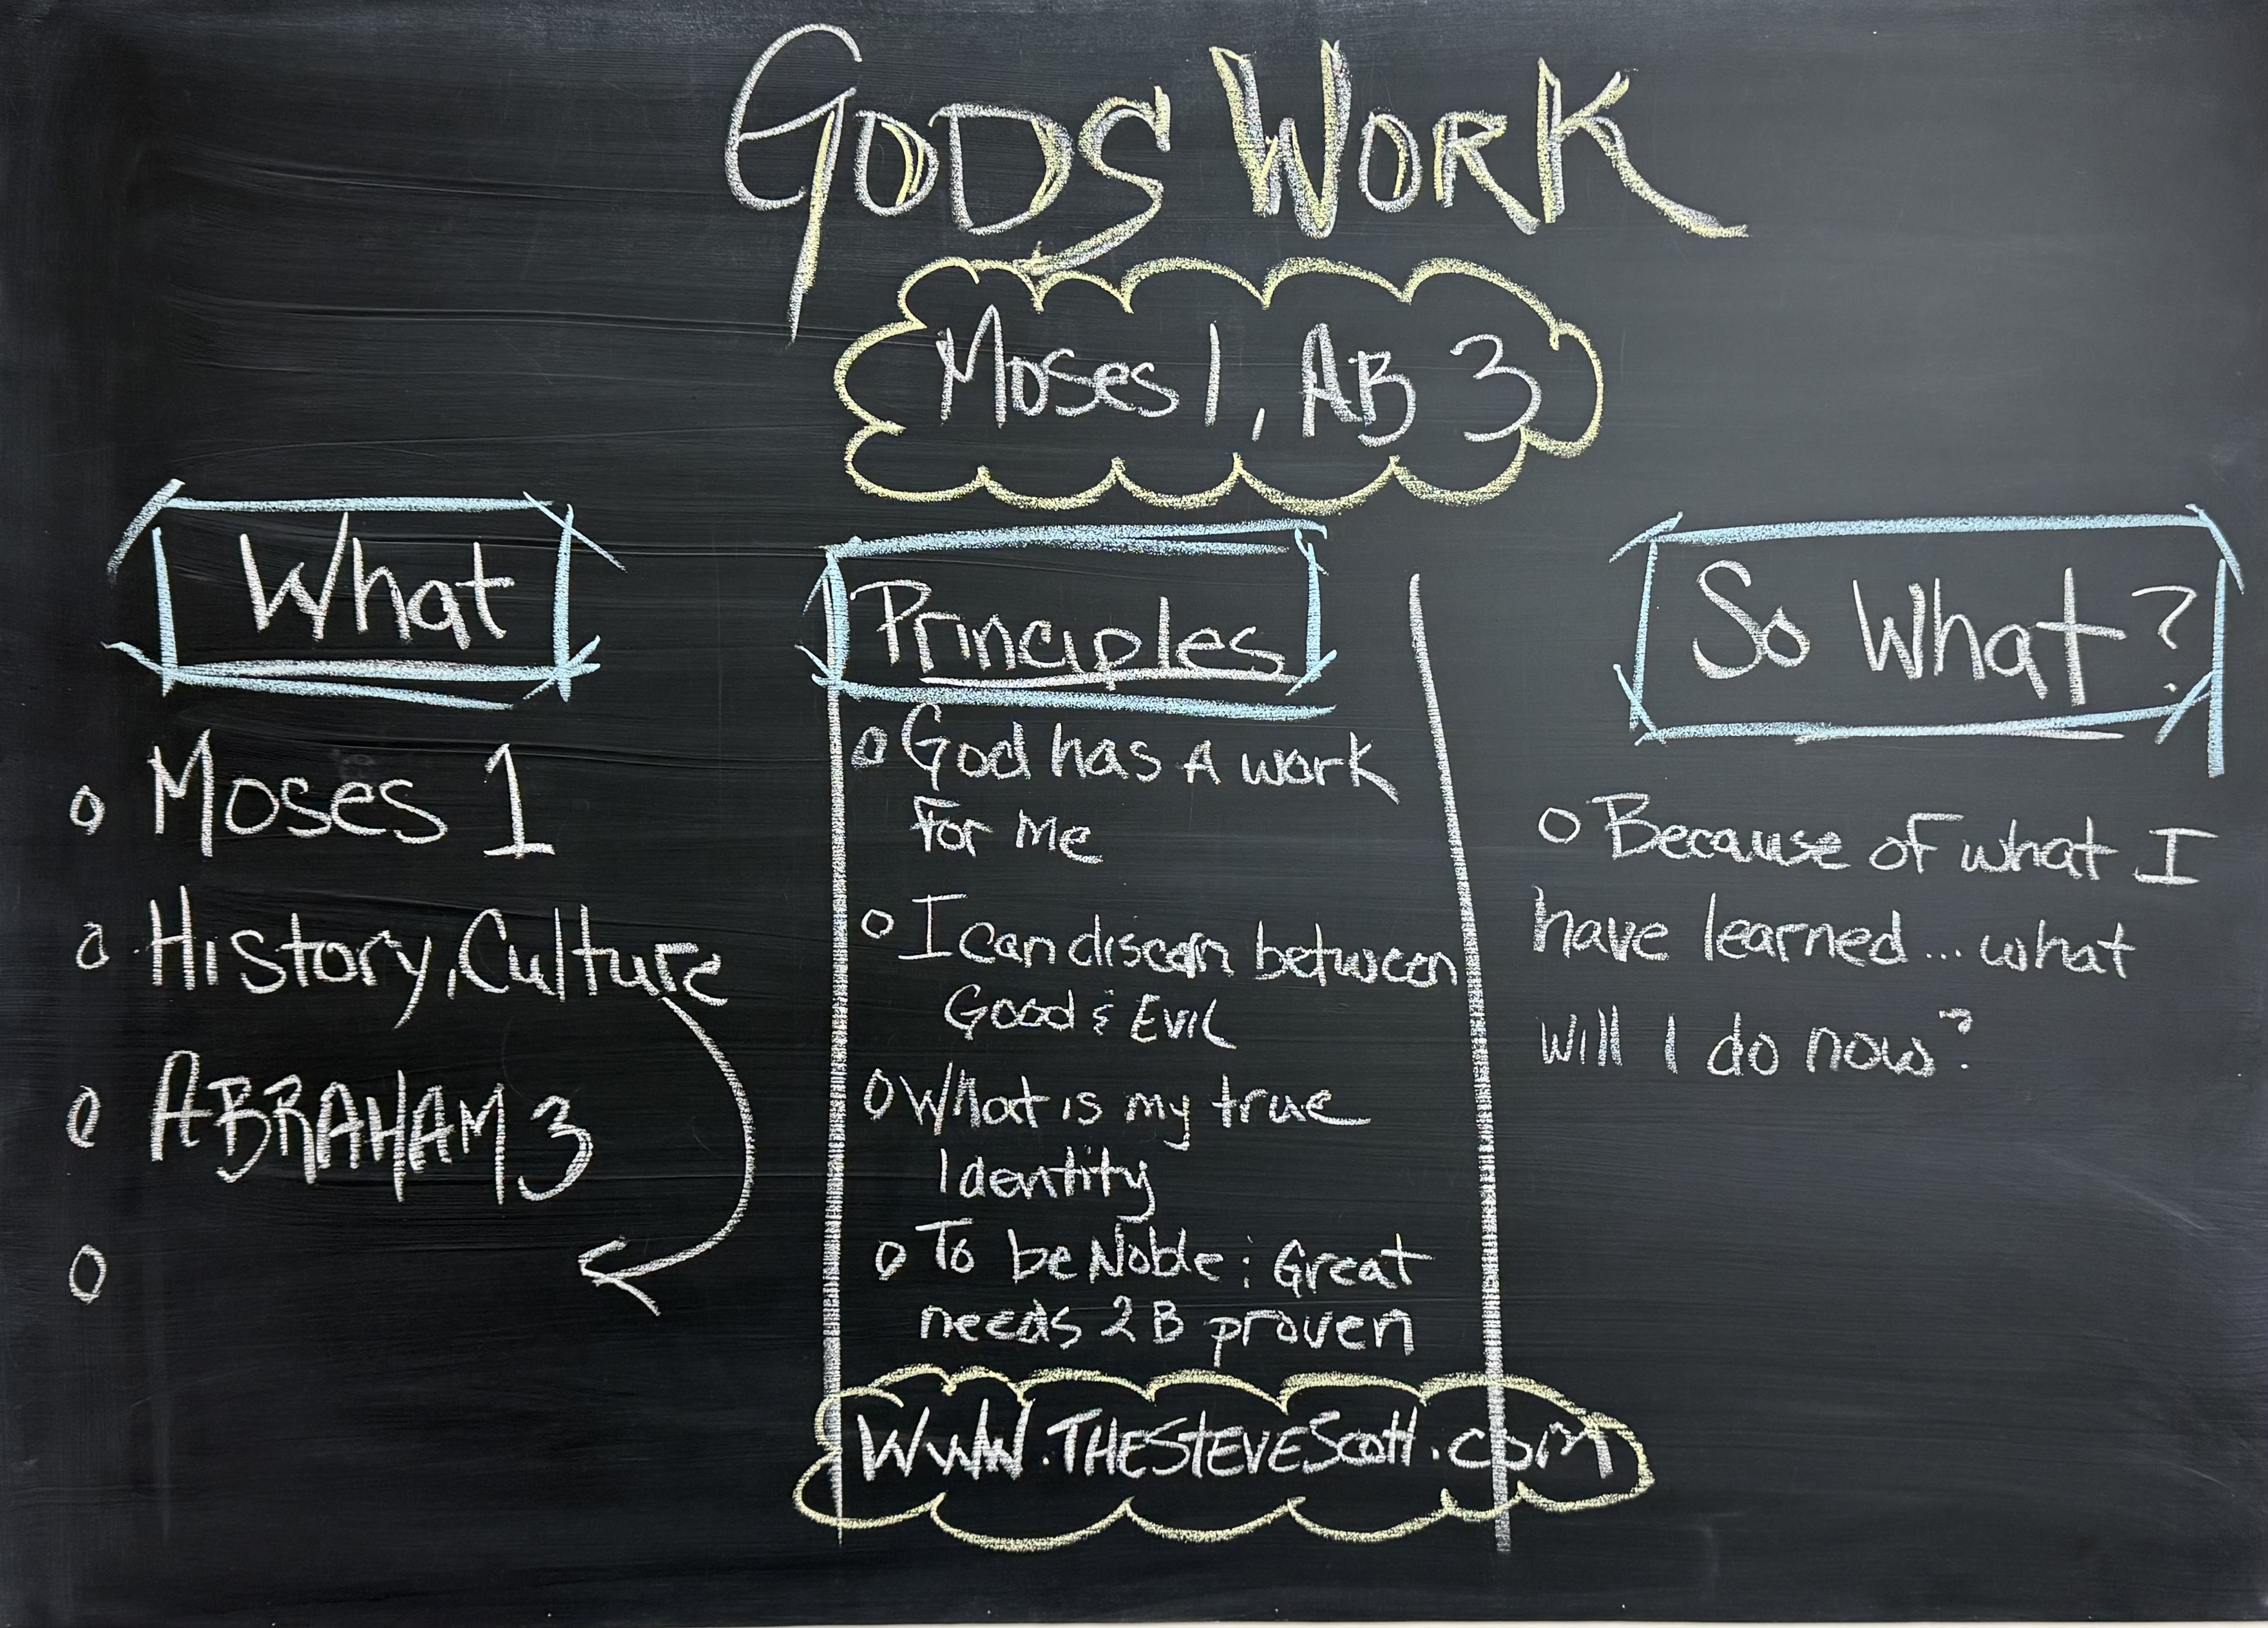 GODS WORK
Moses 1, AB 3
What
o Moses 1
o History, Culture
o ABRAHAM 3
o
Principles
o God has A work
For Me
o I can discern between
Good & Evil
o What is my true
Identity
o To be Noble & Great
needs 2 B proven
So What?
o Because of what I
have learned... what
will I do now?
WWW.THESTEVESCOTT.COM